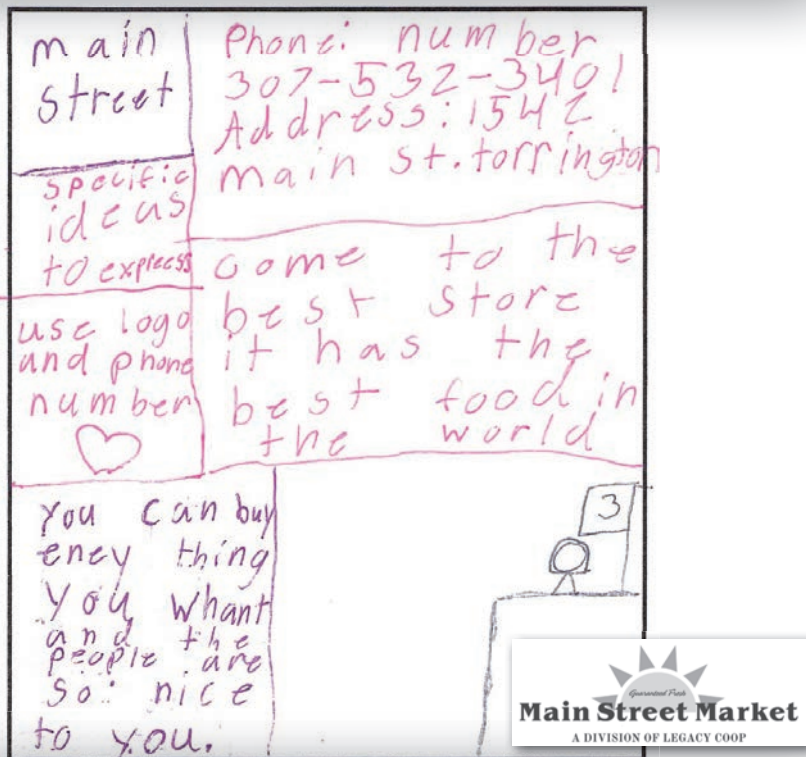 main
street
Phone: number
307-532-3401
Address: 1542
main st. torrington
specific
ideas
to express
come to the
best store
it has the
best food in
the world
use logo
and phone
number
you can buy
eney thing
you whant
and the
people are
so: nice
to you.
3
Guaranteed Fresh
Main Street Market
A DIVISION OF LEGACY COOP